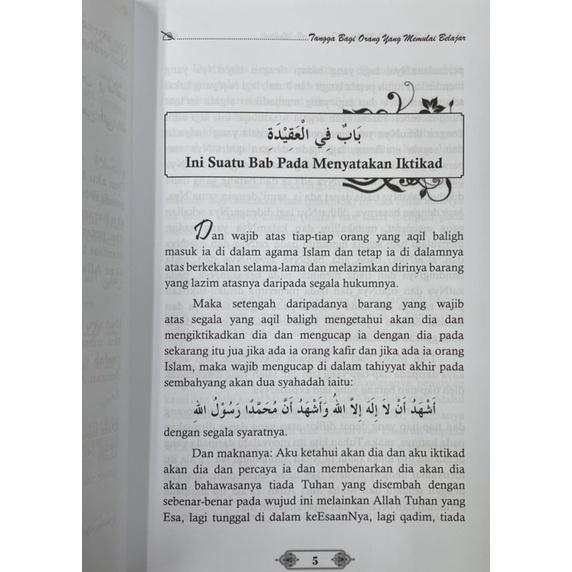 Tangga Bagi Orang Yang Memulai Belajar
بَابٌ فِي الْعَقِيْدَةِ
Ini Suatu Bab Pada Menyatakan Iktikad
Dan wajib atas tiap-tiap orang yang aqil baligh
masuk ia di dalam agama Islam dan tetap ia di dalamnya
atas berkekalan selama-lama dan melazimkan dirinya barang
yang lazim atasnya daripada segala hukumnya.
Maka setengah daripadanya barang yang wajib
atas segala yang aqil baligh mengetahui akan dia dan
mengiktikadkan dia dan mengucap ia dengan dia pada
sekarang itu jua jika ada ia orang kafir dan jika ada ia orang
Islam, maka wajib mengucap di dalam tahiyyat akhir pada
sembahyang akan dua syahadah iaitu:
أَشْهَدُ أَنْ لَا إِلَهَ إِلاَّ اللهُ وَأَشْهَدُ أَنَّ مُحَمَّدًا رَسُوْلُ اللهِ
dengan segala syaratnya.
Dan maknanya: Aku ketahui akan dia dan aku iktikad
akan dia dan percaya ia dan membenarkan dia akan dia
akan bahawasanya tiada Tuhan yang disembah dengan
sebenar-benar pada wujud ini melainkan Allah Tuhan yang
Esa, lagi tunggal di dalam keEsaanNya, lagi qadim, tiada
5